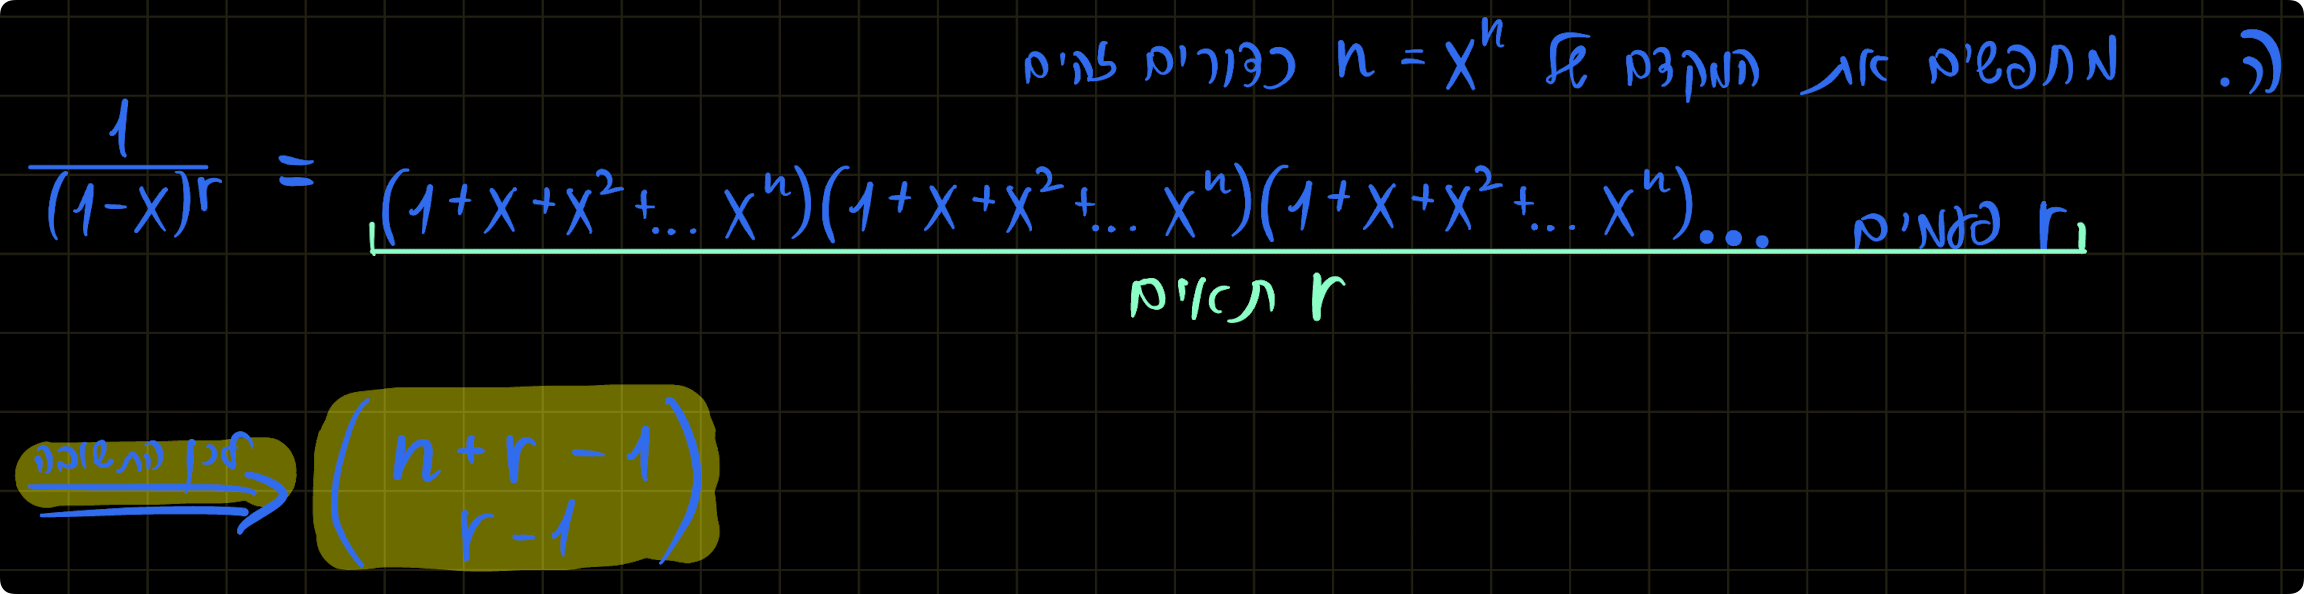 ה. מחפשים את המקדם של X^n = n כדורים זהים
1/(1-X)^r = (1+X+X^2+... X^n)(1+X+X^2+... X^n)(1+X+X^2+... X^n)... r פעמים
r תאים
לכן התשובה ⇒ (n+r-1 / r-1)